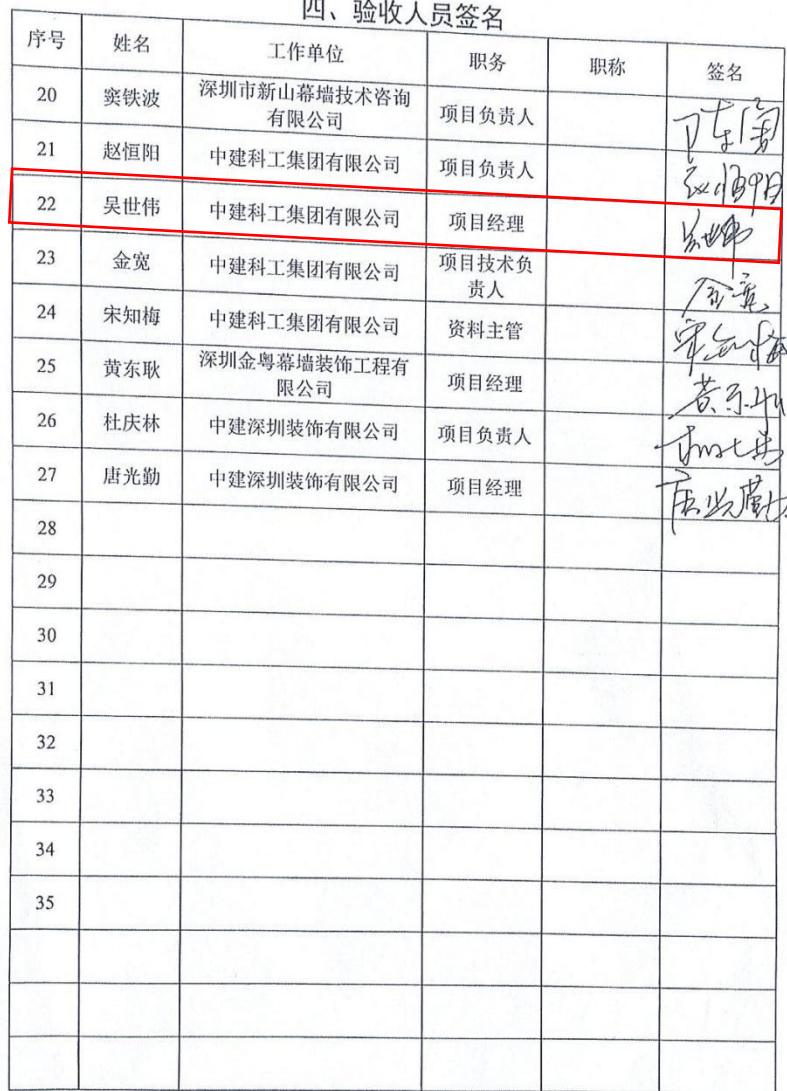 四、验收人员签名
序号 姓名 工作单位 职务 职称 签名
20 窦铁波 深圳市新山幕墙技术咨询
有限公司 项目负责人
21 赵恒阳 中建科工集团有限公司 项目负责人 赵恒阳
22 吴世伟 中建科工集团有限公司 项目经理 吴世伟
23 金宽 中建科工集团有限公司 项目技术负
责人 金宽
24 宋知梅 中建科工集团有限公司 资料主管 宋知梅
25 黄东耿 深圳金粤幕墙装饰工程有
限公司 项目经理 黄东耿
26 杜庆林 中建深圳装饰有限公司 项目负责人
27 唐光勤 中建深圳装饰有限公司 项目经理 唐光勤
28
29
30
31
32
33
34
35